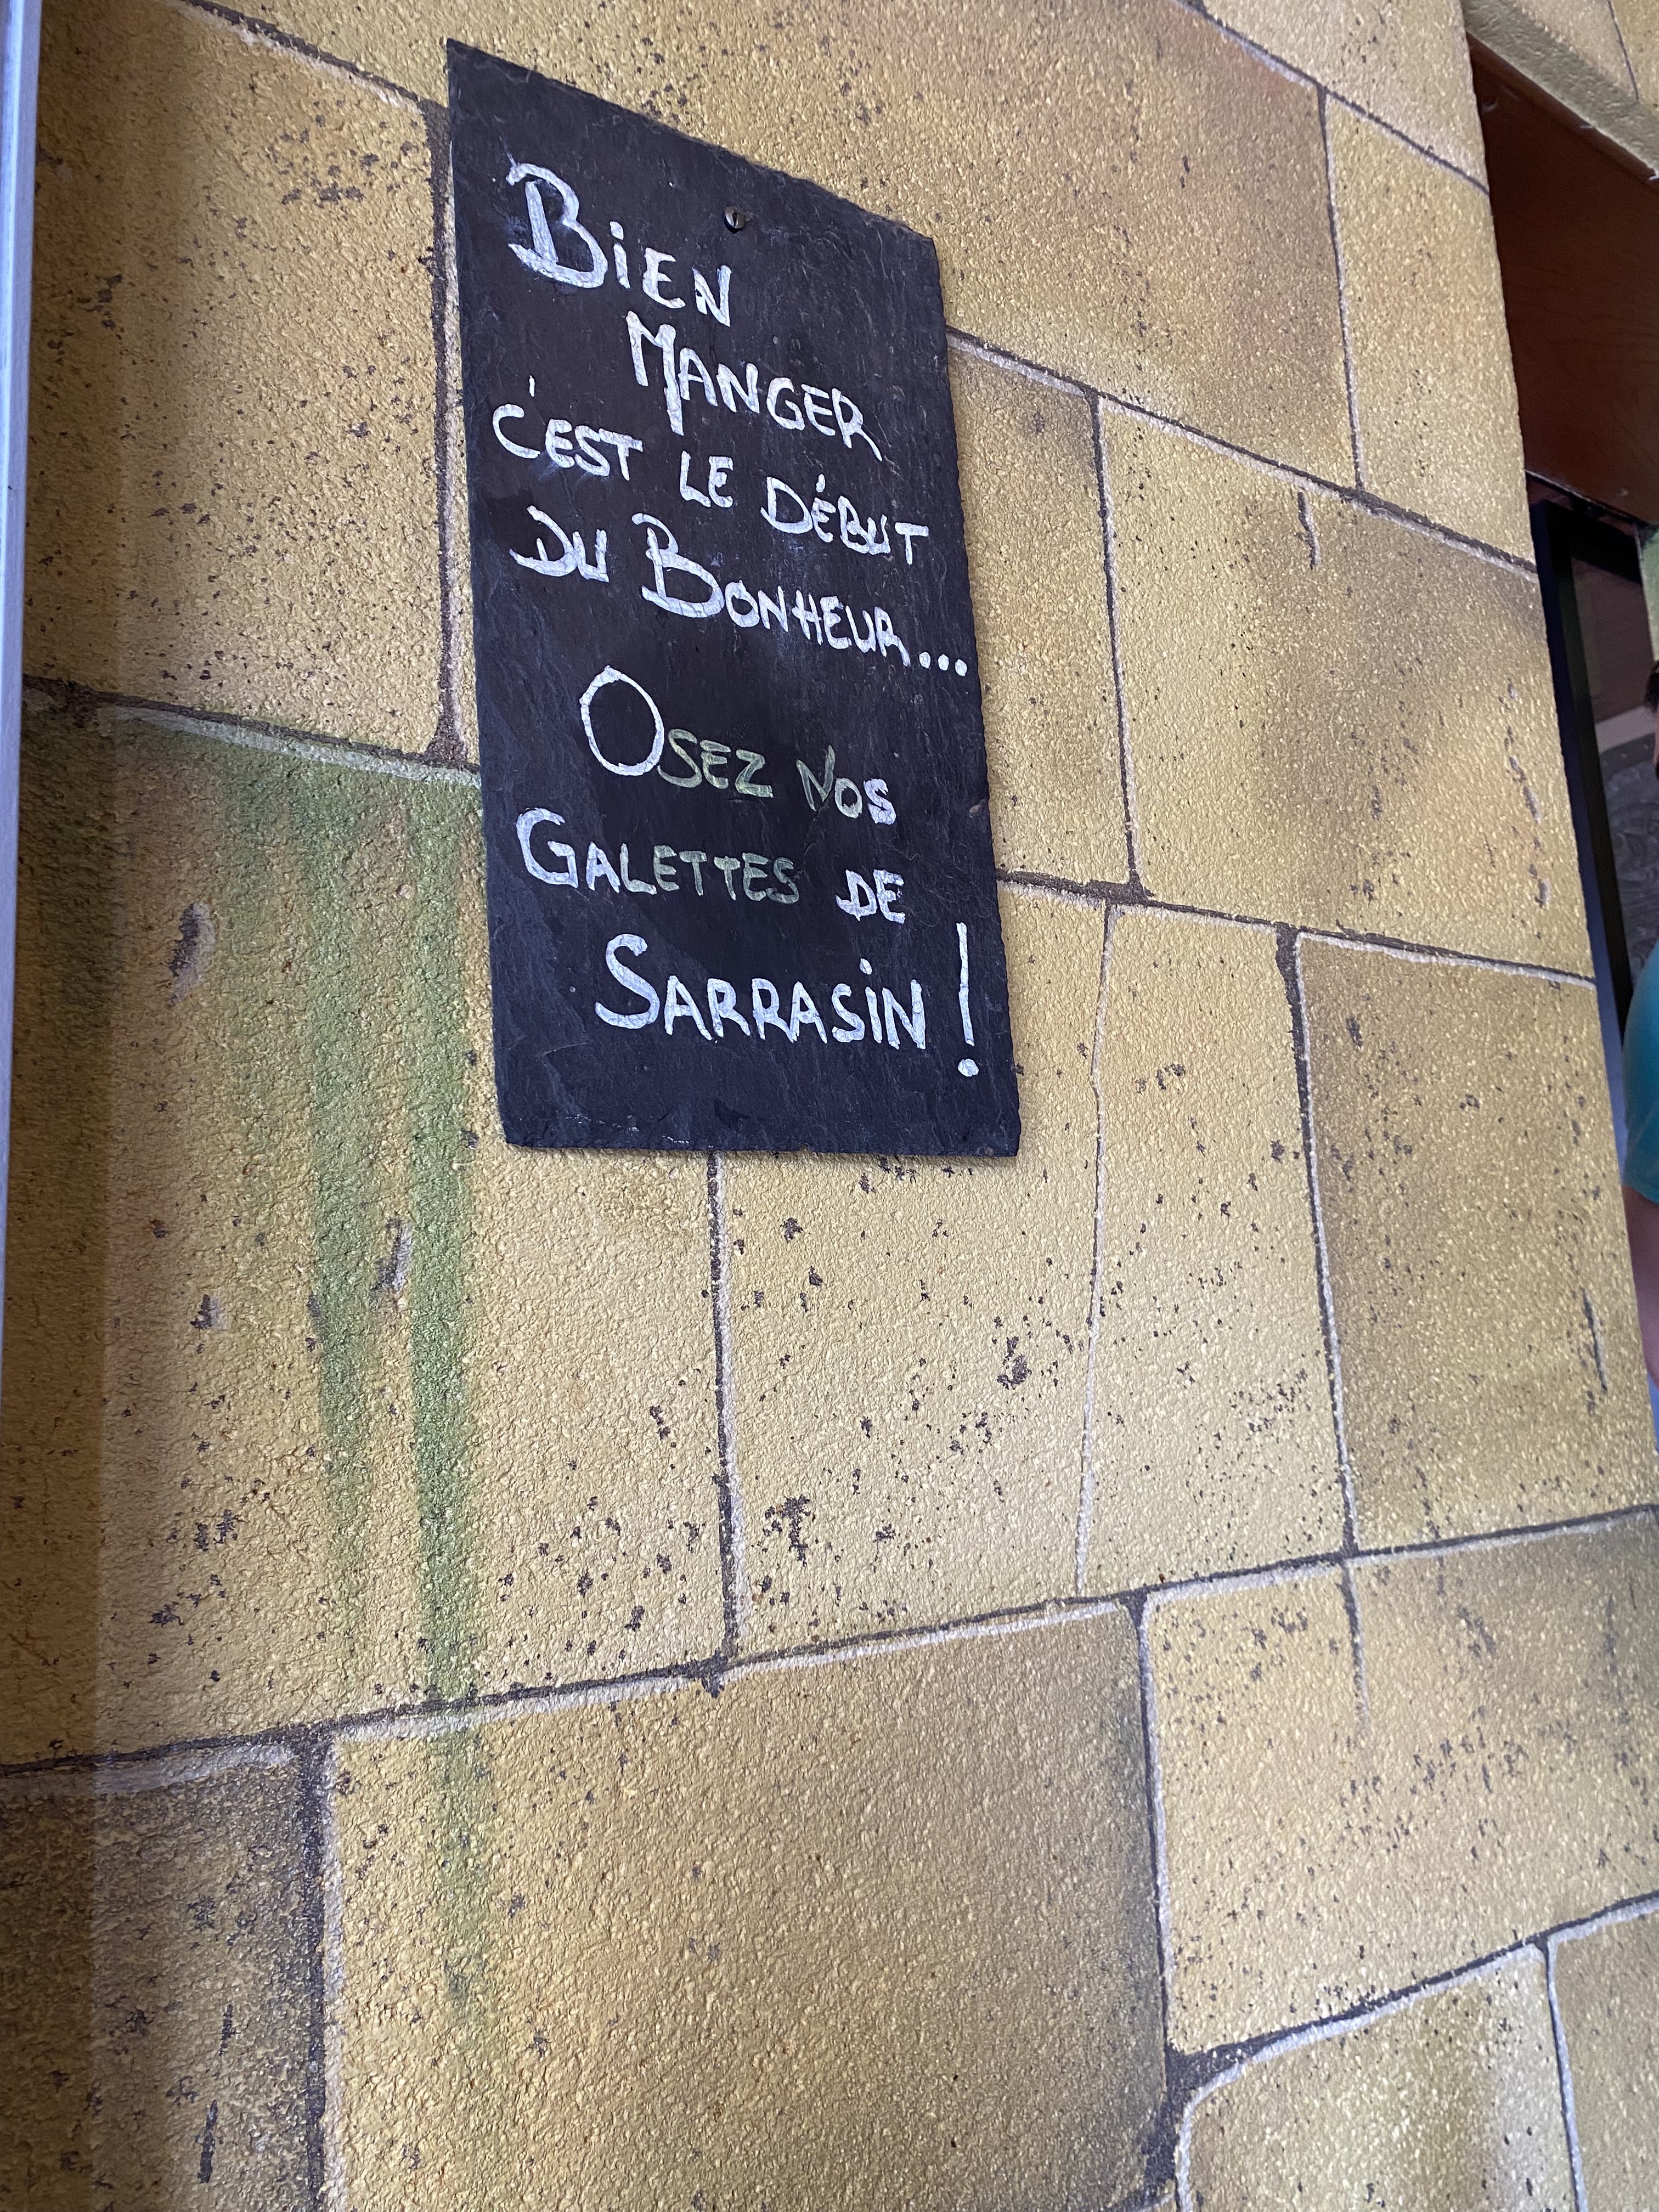 BiEN
MANGER
C'EST LE DÉBUT
DU BONHEUR...
OSEZ NOS
GALETTES DE
SARRASiN !